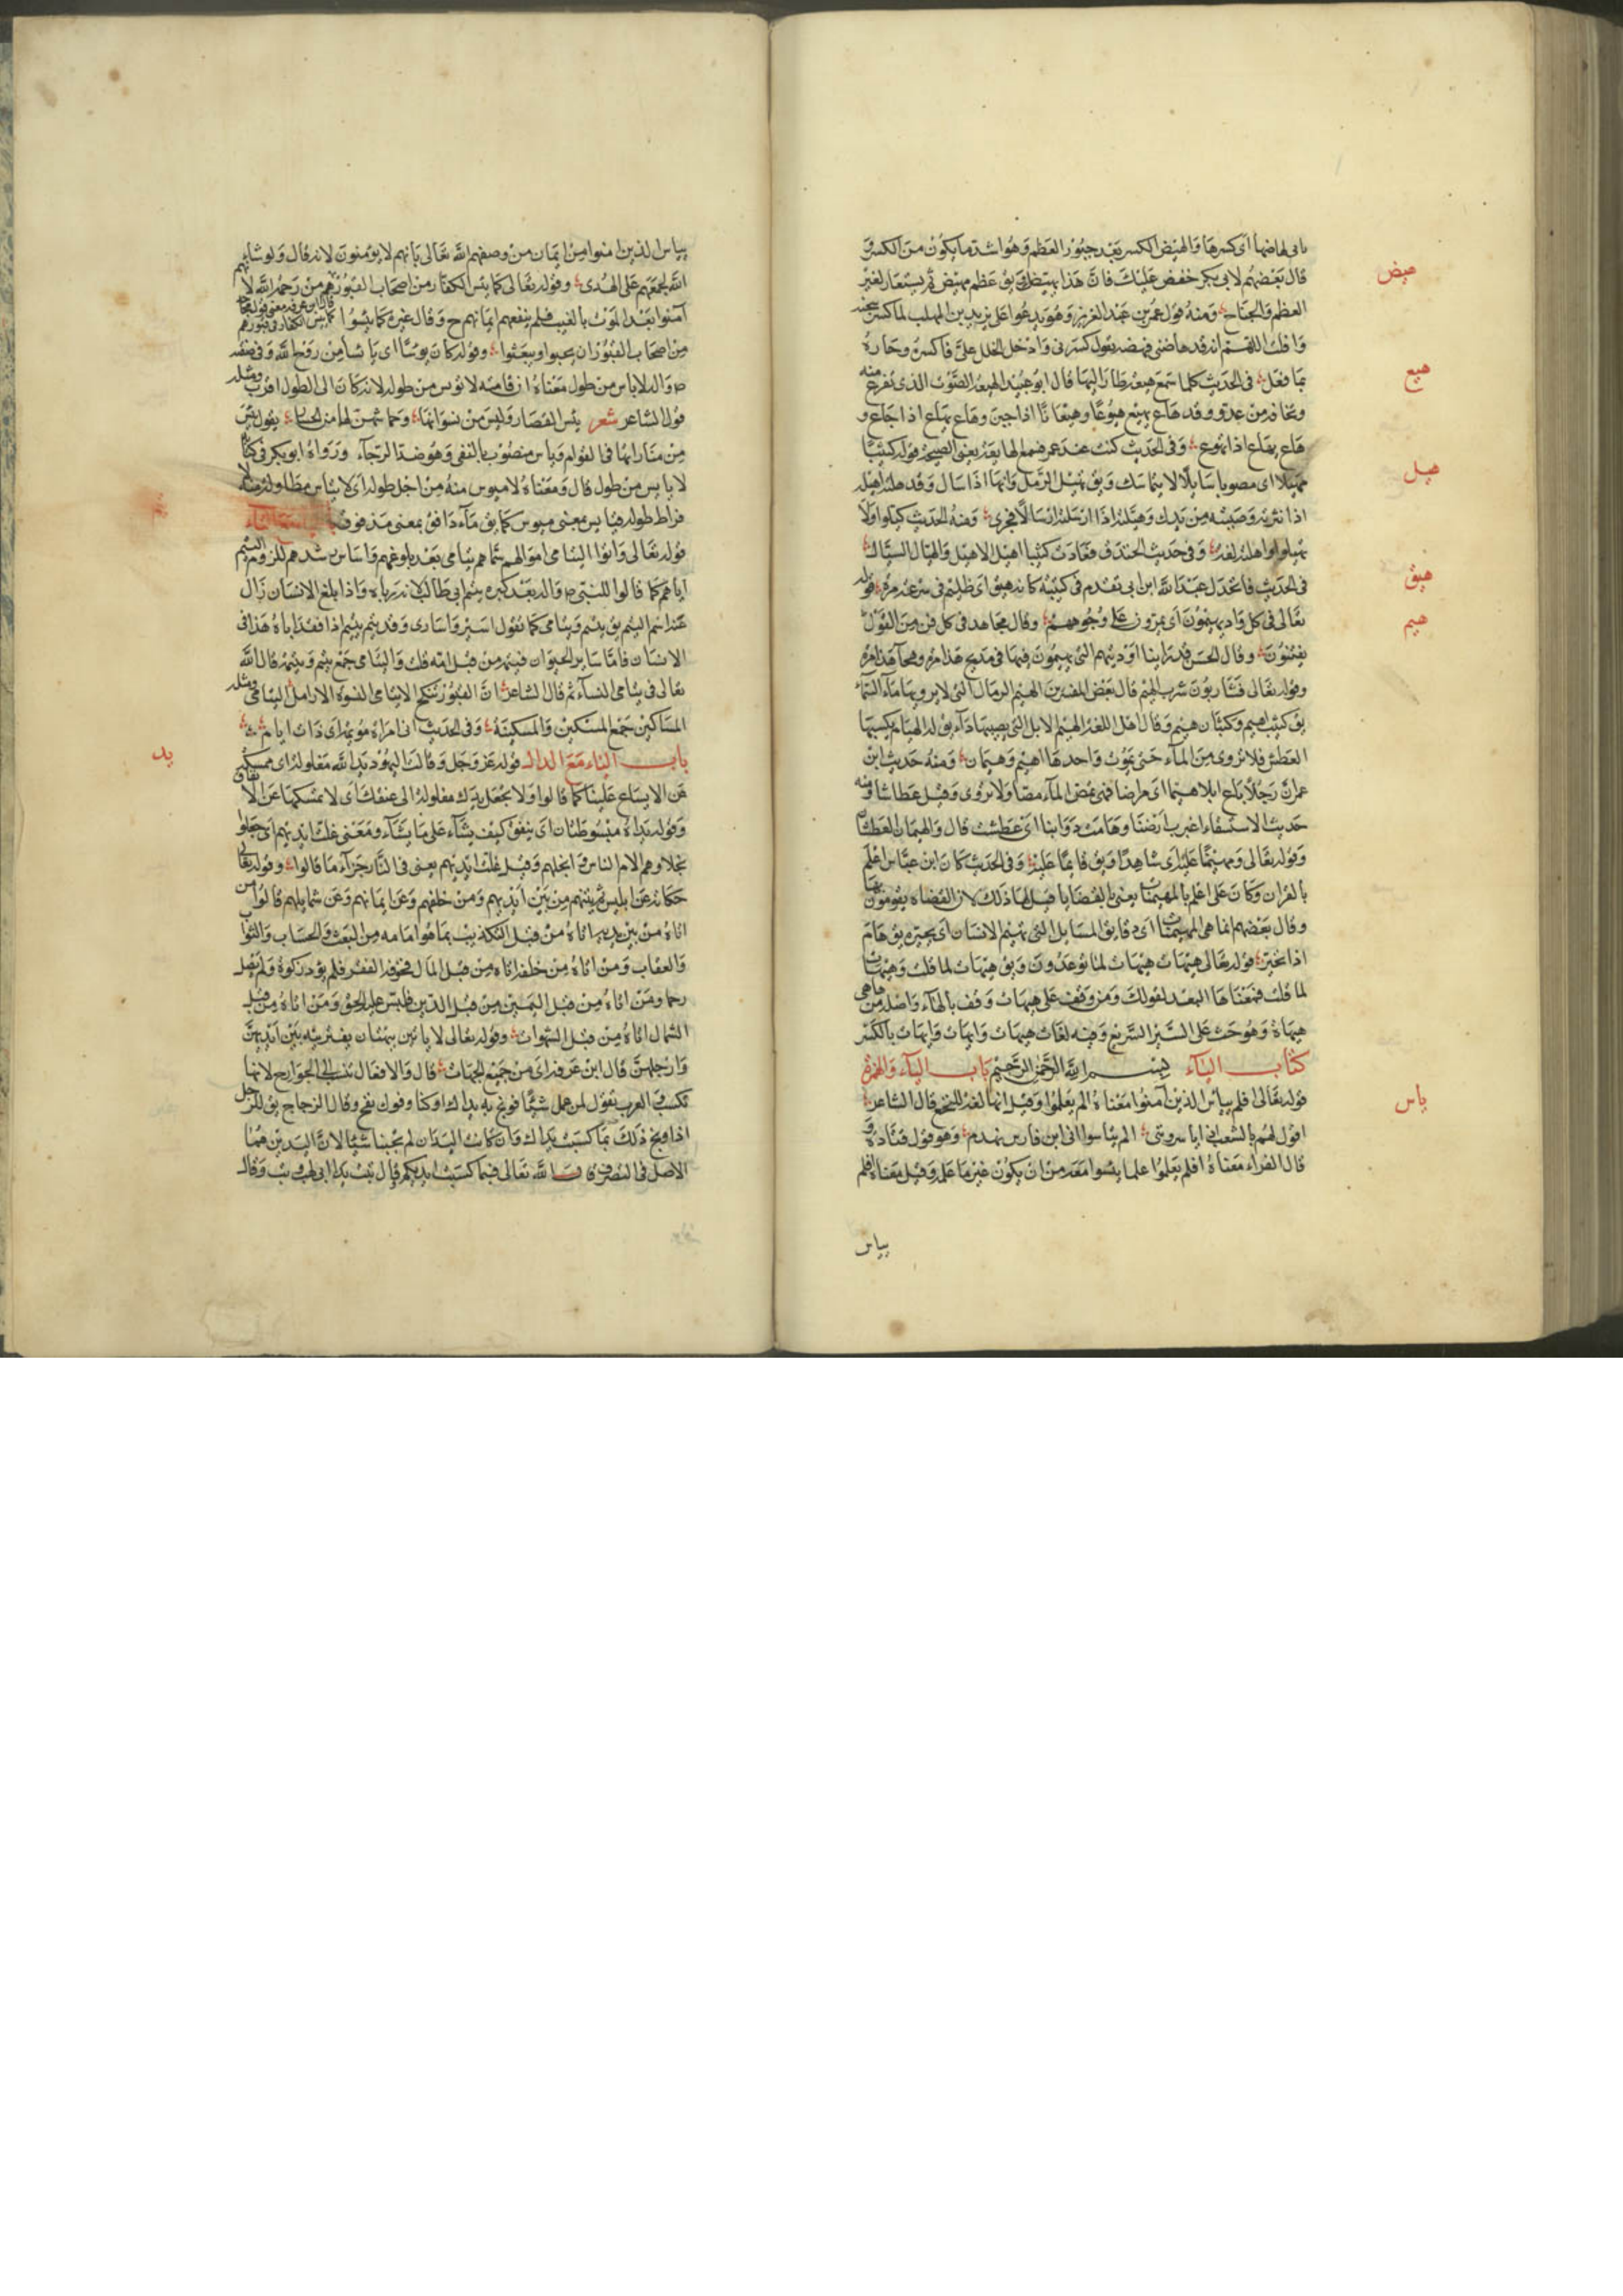 قال بعضهم لابي بكر خفض عليك فان هذا يهيضك ويق عظم مهيض ثم يستعار لغير
هيض
العظم والجناح ومنه قول عمر بن عبد العزيز وهو يدعوا على يزيد بن المهلب لما كسر سجنه
وافلت اللهم انه قد هاضنى فهضه يقول كسرنى وادخل الخلل على فاكسره وجازه
بما فعل في الحديث كلما استمع هيعة طار اليها قال ابو عبيد الهيعة الصوت الذى تفزع منه
هيع
وتخافه من عدو وقد هاع يهيع هيوعا وهيعانا اذا جبن وهاع يهاع اذا جاع و
هاع يهاع اذا تهوع وفى الحديث كنت عند عمر فسمع الهايعة يعنى الصيحة قوله كثيبا
مهيلا اى مصبوبا سايلا لا يتماسك ويق تهيل الرمل وانهال اذا سال وقد هلته اهيله
هيل
اذا نثرته وصببته من يدك وهيلته اذا ارسلته ارسالا فجرى ومنه الحديث كيلوا ولا
تهيلوا واهلته لغة وفى حديث الخندق فعادت كثيبا اهيل الاهيل والهيال السيال
فى الحديث فانخذل عبد الله ابن ابى تقدم فى كتيبة كانه هيق اى ظليم فى سرعة مره قوله
هيق
تعالى فى كل واد يهيمون اى يمرون على وجوههم وقال مجاهد فى كل فن من القول
هيم
يفتنون وقال الحسن قد راينا اوديتهم التى يهيمون فيها فى مديح هذا مرة وهجاء هذا مرة
وقوله تعالى فشاربون شرب الهيم قال بعض المفسرين الهيم الرمال التى لا يرويها ماء السماء
يق كثيب اهيم وكثبان هيم وقال اهل اللغة الهيم الابل التى يصيبها داء يق له الهيام يكسبها
العطش فلا تروى من الماء حتى تموت واحدها اهيم وهيمان ومنه حديث ابن
عمر ان رجلا باع ابلا هيما اى مراضا فهى تمص الماء مصا ولا تروى وقيل عطاشا ومنه
حديث الاستسقاء اغبرت ارضنا وهامت دوابنا اى عطشت قال والهيمان العطشان
وقوله تعالى ومهيمنا عليه اى شاهدا ويق قايما عليه وفى الحديث كان ابن عباس اعلم
بالقران وكان على اعلم بالمهيمنات يعنى بالقضايا قيل لها ذلك لان القضاة يقومون بها
وقال بعضهم انما هى المهيمات اى دقايق المسايل التى تهيم الانسان اى تحيره يق هام
اذا تحير قوله تعالى هيهات هيهات لما توعدون ويق هيهات لما قلت وهيهات
لما قلت فمعناها البعد لقولك ومن وقف على هيهات وقف بالهاء واصله من هاهى
هيهاة وهو حث على السير السريع وفيه لغات هيهات وايهات وايهات بالكسر
كتاب الياء بسم الله الرحمن الرحيم باب الياء والهمزة
قوله تعالى افلم ييأس الذين آمنوا معناه الم يعلموا وقيل انها لغة للنخع قال الشاعر
ياس
اقول لهم بالشعب اذ ياسروننى الم يياسوا انى ابن فارس زهدم وهو قول قتادة و
قال الفراء معناه افلم يعلموا علما يئسوا معه من ان يكون غير ما علموه وقيل معناه افلم
يياس
يياس الذين امنوا من ايمان من وصفهم الله تعالى بانهم لا يؤمنون لانه قال ولو شاء
الله لجمعهم على الهدى وقوله تعالى كما يئس الكفار من اصحاب القبور
آمنوا بعد الموت بالغيب فلم ينفعهم ايمانهم ح وقال غيره كما يئسوا
من اصحاب القبور ان يحيوا ويبعثوا وقوله كان يؤسا اى يائسا من روح الله وفى صفته
واله لا ياس من طول معناه ان قامته لا تؤيس من طوله لانه كان الى الطول اقرب ومثله
قول الشاعر شعر يئس القصار
لا يايس من طول قال ومعناه لا ميؤس منه من اجل طوله اى لا يياس مطاوله منه
فراط طوله فيايس بمعنى ميؤس كما يق ماء دافق بمعنى مدفوق
قوله تعالى وآتوا اليتامى اموالهم سماهم يتامى بعد بلوغهم وايناس رشدهم للزوم اليتم
اياهم كما قالوا للنبى ص واله بعد كبره يتيم ابى طالب لانه رباه واذا بلغ الانسان زال
عنه اسم اليتيم يق يتيم ويتامى كما تقول اسير واسارى وقد يتم ييتم اذا فقد اباه هذا فى
الانسان فاما ساير الحيوان فيتمه من قبل امه قلت واليتامى جمع يتيم ويتيمة قال الله
تعالى فى يتامى النساء ثم قال الشاعر ان القبور تنكح الايامى النسوة الارامل اليتامى ومثله
المساكين جمع المسكين والمسكينة وفى الحديث انى امراة موتمة اى ذات ايتام
باب الياء مع الدال قوله عز وجل وقالت اليهود يد الله مغلولة اى ممسكة
يد
عن الاتساع علينا كما قالوا ولا تجعل يدك مغلولة الى عنقك اى لا تمسكها عن الانفاق
وقوله بل يداه مبسوطتان اى ينفق كيف يشاء على ما يشاء ومعنى غلت ايديهم اى جعلوا
بخلاء وهم الام الناس وابخلهم وقيل غلت ايديهم يعنى فى النار جزاء ما قالوا وقوله تعالى
حكاية عن ابليس ثم لآتينهم من بين ايديهم ومن خلفهم وعن ايمانهم وعن شمايلهم قالوا من
اتاه من بين يديه اتاه من قبل التكذيب بما هو امامه من البعث والحساب والثواب
والعقاب ومن اتاه من خلفه اتاه من قبل المال فخوفه الفقر فلم يؤد زكوة ولم يصل
رحما ومن اتاه من قبل اليمين من قبل الدين فلبس عليه الحق ومن اتاه من قبل
الشمال اتاه من قبل الشهوات وقوله تعالى لا ياتين ببهتان يفترينه بين ايديهن
وارجلهن قال ابن عرفة اى من جميع الجهات قال والافعال تنسب الى الجوارح لانها
تكسب العرب تقول لمن عمل شيئا فوبخ به يداك اوكتا وفوك نفخ وقال الزجاج يق للرجل
اذا وبخ ذلك بما كسبت يداك وان كانت اليدان لم تجنيا شيئا لان اليدين هما
الاصل فى التصرف قال الله تعالى فبما كسبت ايديكم وقال تبت يدا ابى لهب وتب وقال